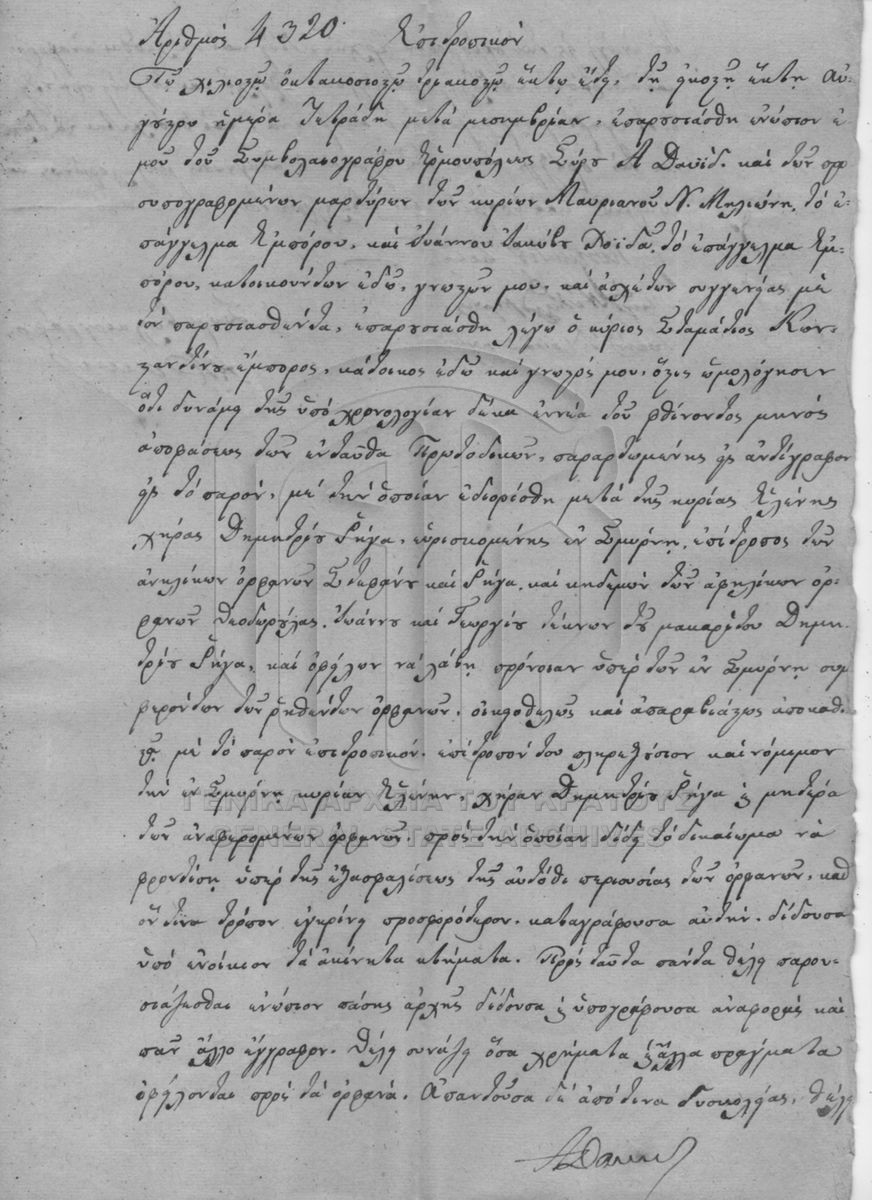 Ἀριθμὸς 4320. Ἐπιτροπικόν
Τῷ χιλιοστῷ ὀκτακοσιοστῷ τριακοστῷ ἕκτῳ ἔτει, τῇ εἰκοστῇ ἕκτῃ Αὐ-
γούστου ἡμέρᾳ Τετράδῃ μετὰ μεσημβρίαν, ἐπαρουσιάσθη ἐνώπιον ἐ-
μοῦ τοῦ Συμβολαιογράφου Ἑρμουπόλεως Σύρου Α Δαυίδ. καὶ τῶν προ
συπογραφομένων μαρτύρων τῶν κυρίων Μαυριανοῦ Ν. Μηλιώνη, τὸ ἐ-
πάγγελμα ἐμπόρου, καὶ Ἰωάννου Ἰακώβου Χοϊδᾶ, τὸ ἐπάγγελμα ἐμ-
πόρου, κατοικούντων ἐδῶ, γνωστῶν μου, καὶ ἀσχέτων συγγενείας μὲ
τὸν παρουσιασθέντα, ἐπαρουσιάσθη λέγω ὁ κύριος Σταμάτιος Κων-
σταντίνου ἔμπορος, κάτοικος ἐδῶ καὶ γνωστός μου, ὅστις ὡμολόγησεν
ὅτι δυνάμει τῆς ὑπὸ χρονολογίαν δέκα ἐννέα τοῦ φθίνοντος μηνὸς
ἀποφάσεως τῶν ἐνταῦθα Πρωτοδικῶν, παραρτωμένης εἰς ἀντίγραφον
εἰς τὸ παρόν, μὲ τὴν ὁποίαν ἐδιορίσθη μετὰ τῆς κυρίας Ἑλένης
χήρας Δημητρίου Ῥήγα, εὑρισκομένης ἐν Σμύρνῃ, ἐπίτροπος τῶν
ἀνηλίκων ὀρφανῶν Στεφάνου καὶ Ῥήγα, καὶ κηδεμὼν τῶν ἀφηλίκων ὀρ-
φανῶν Θεοδωρούλας, Ἰωάννου καὶ Γεωργίου τέκνων τοῦ μακαρίτου Δημη-
τρίου Ῥήγα, καὶ ὀφείλων νὰ λάβῃ πρόνοιαν ὑπὲρ τῶν ἐν Σμύρνῃ συμ
φερόντων τῶν ῥηθέντων ὀρφανῶν, οἰκειοθελῶς καὶ ἀπαραβιάστως ἀποκαθι-
στᾷ μὲ τὸ παρὸν ἐπιτροπικόν, ἐπίτροπόν του πληρεξούσιον καὶ νόμιμον
τὴν ἐν Σμύρνῃ κυρίαν Ἑλένην, χήραν Δημητρίου Ῥήγα καὶ μητέρα
τῶν ἀναφερομένων ὀρφανῶν, πρὸς τὴν ὁποίαν δίδει τὸ δικαίωμα νὰ
φροντίσῃ ὑπὲρ τῆς ἐξασφαλίσεως τῆς αὐτόθι περιουσίας τῶν ὀρφανῶν, καθ
ὅν τινα τρόπον ἐγκρίνῃ προσφορότερον, καταγράφουσα αὐτήν, δίδουσα
ὑπὸ ἐνοίκιον τὰ ἀκίνητα κτήματα. Πρὸς ταῦτα πάντα θέλει παρου-
σιάζεσθαι ἐνώπιον πάσης ἀρχῆς δίδουσα καὶ ὑπογράφουσα ἀναφορὰς καὶ
πᾶν ἄλλο ἔγγραφον. Θέλει συνάξῃ ὅσα χρήματα καὶ ἄλλα πράγματα
ὀφείλονται πρὸς τὰ ὀρφανά. Ἀπαντοῦσα δὲ ἀπό τινα δυσκολίας, θέλει
ΓΕΝΙΚΑ ΑΡΧΕΙΑ ΤΟΥ ΚΡΑΤΟΥΣ
GENERAL STATE ARCHIVES